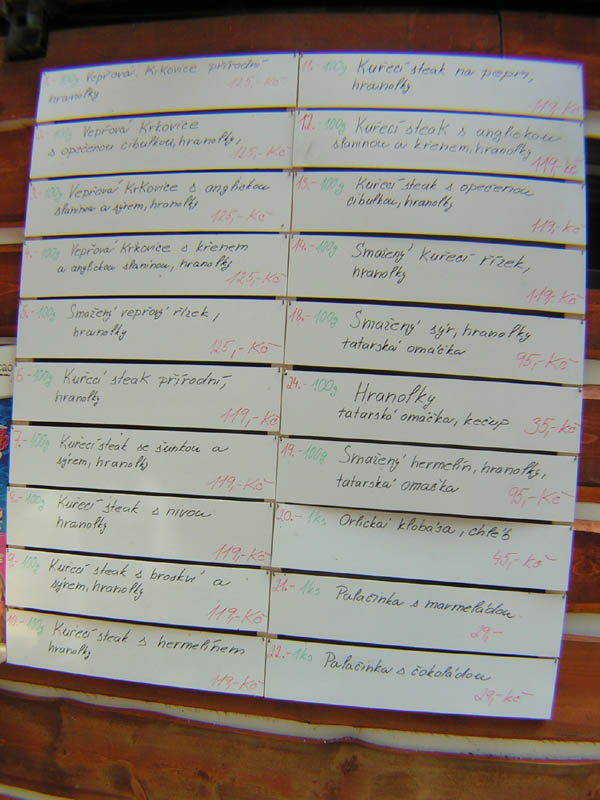 1.- 100g Vepřová Krkovice přírodní
hranolky
125,-Kč
2.- 100g Vepřová Krkovice
s opečenou cibulkou, hranolky,
125,-Kč
3.- 100g Vepřová Krkovice s anglickou
slaninou a sýrem, hranolky
125,-Kč
4.- 100g Vepřová Krkovice s křenem
a anglickou slaninou, hranolky
125,-Kč
5.- 100g Smažený vepřový řízek,
hranolky
125,-Kč
6.- 100g Kuřecí steak přírodní,
hranolky
119,-Kč
7.- 100g Kuřecí steak se šunkou a
sýrem, hranolky
119,-Kč
8.- 100g Kuřecí steak s nivou
hranolky
119,-Kč
9.- 100g Kuřecí steak s broskví a
sýrem, hranolky
119,-Kč
10.- 100g Kuřecí steak s hermelínem
hranolky
119,-Kč
11.- 100g Kuřecí steak na pepři,
hranolky
119,-Kč
12.- 100g Kuřecí steak s anglickou
slaninou a křenem, hranolky
119,-Kč
13.- 100g Kuřecí steak s opečenou
cibulkou, hranolky
119,-Kč
14.- 100g Smažený Kuřecí řízek,
hranolky
119,-Kč
18.- 100g Smažený sýr, hranolky
tatarská omáčka
95,-Kč
24.- 100g Hranolky
tatarská omáčka, kečup
35,-Kč
19.- 100g Smažený hermelín, hranolky,
tatarská omáčka
95,-Kč
20.- 1ks Orlická klobása, chléb
45,-Kč
21.- 1ks Palačinka s marmeládou
29,-
22.- 1ks Palačinka s čokoládou
29,-Kč